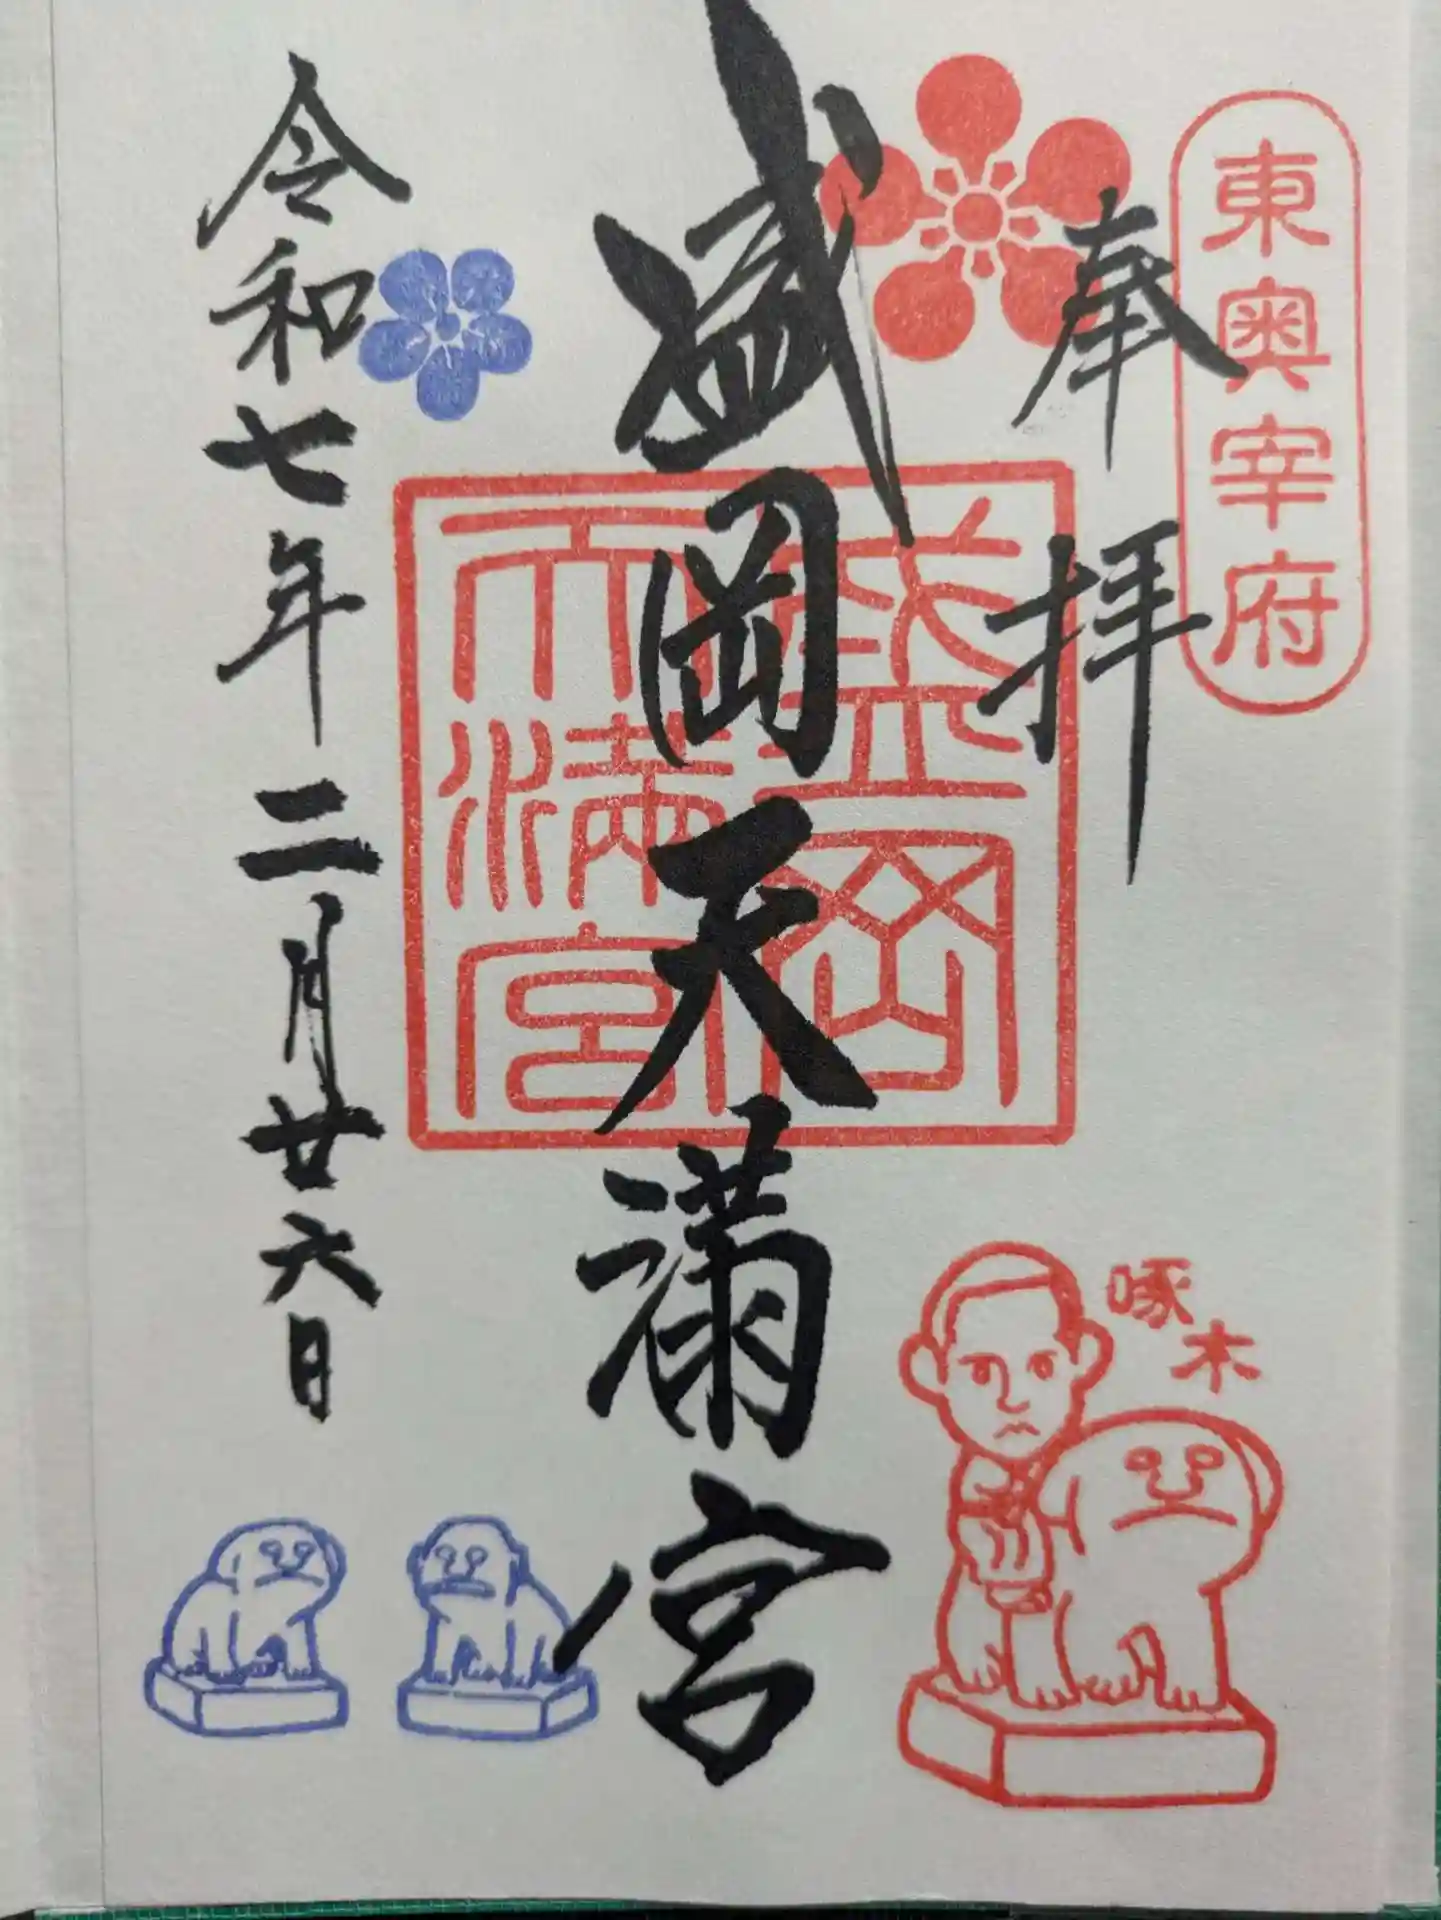 東奥宰府
奉拝
盛岡天満宮
盛岡
天満宮
令和七年二月廿六日
啄木